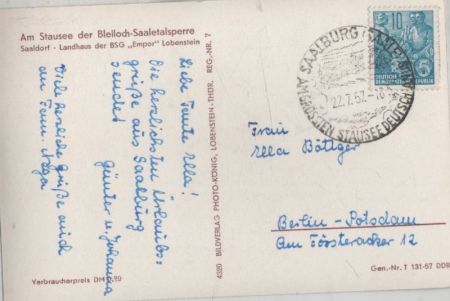 Am Stausee der Bleiloch-Saaletalsperre
Saaldorf - Landhaus der BSG „Empor" Lobenstein
Liebe Tante Ella!
Die herzlichsten Urlaubs=
grüße aus Saalburg
sendet
Günter u. Johanna
Viele herzliche Grüße auch
an
4320 BILDVERLAG PHOTO-KÖNIG, LOBENSTEIN-THÜR. REG.-NR. 7
SAALBURG (SAALE)
22.7.57
AM GRÖSSTEN STAUSEE DEUTSCHLANDS
10
DEUTSCHE
DEMOKRATISCHE
REPUBLIK
Frau
Ella Böttger
Berlin-Potsdam
Am Försteracker 12
Verbraucherpreis DM 0,20
Gen.-Nr. T 131-57 DDR